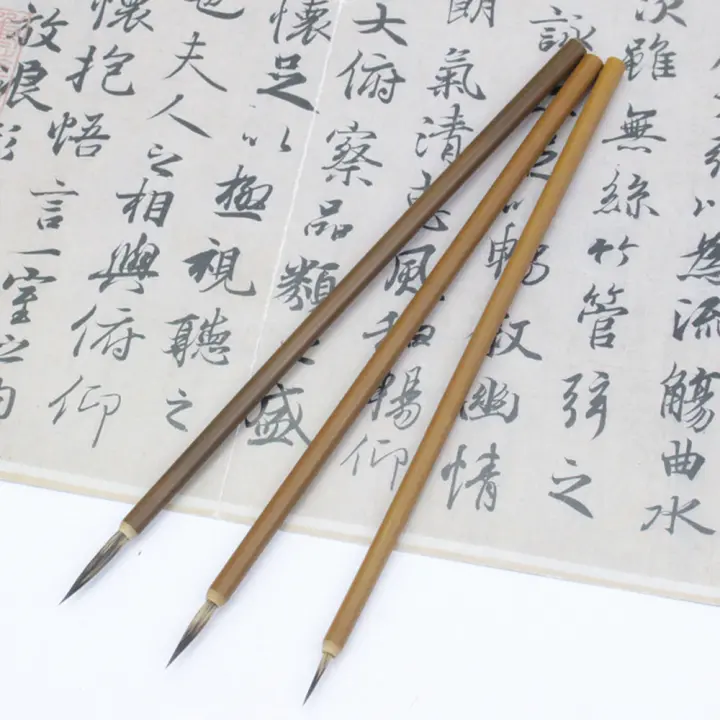 以為流觴曲水
次雖無絲竹管弦之
詠足以暢敘幽情
朗氣清惠風和暢仰
大俯察品類之盛
懷足以極視聽之
也夫人之相與俯仰
懷抱悟言一室之內
放浪